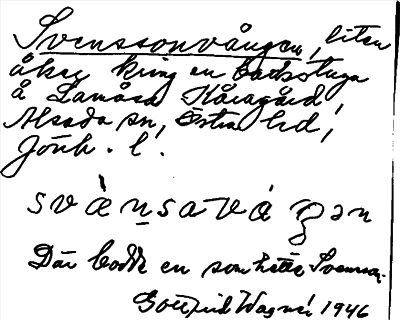 Svenssonvången, liten
åker kring en backstuga
å Lamåsa Kåragård,
Alseda sn, Östra hd,
Jönk. l.
svὲn̠saváŋən
Där bodde en som hette Svensson.
Gottfrid Wagnér 1946